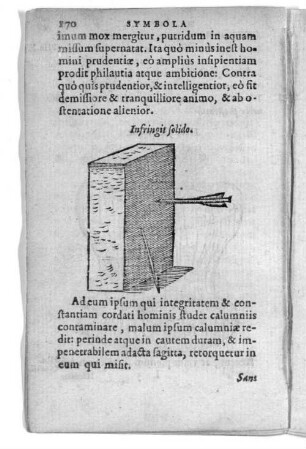 170 SYMBOLA
imum mox mergitur, putridum in aquam
missum supernatat. Ita quò minùs inest ho-
mini prudentiæ, eò ampliùs insipientiam
prodit philautia atque ambitione: Contra
quò quis prudentior, & intelligentior, eò sit
demissiore & tranquilliore animo, & ab o-
stentatione alienior.
Infringit solido.
Ad eum ipsum qui integritatem & con-
stantiam cordati hominis studet calumniis
contaminare, malum ipsum calumniæ re-
dit: perinde atque in cautem duram, & im-
penetrabilem adacta sagitta, retorquetur in
eum qui misit.
Sans